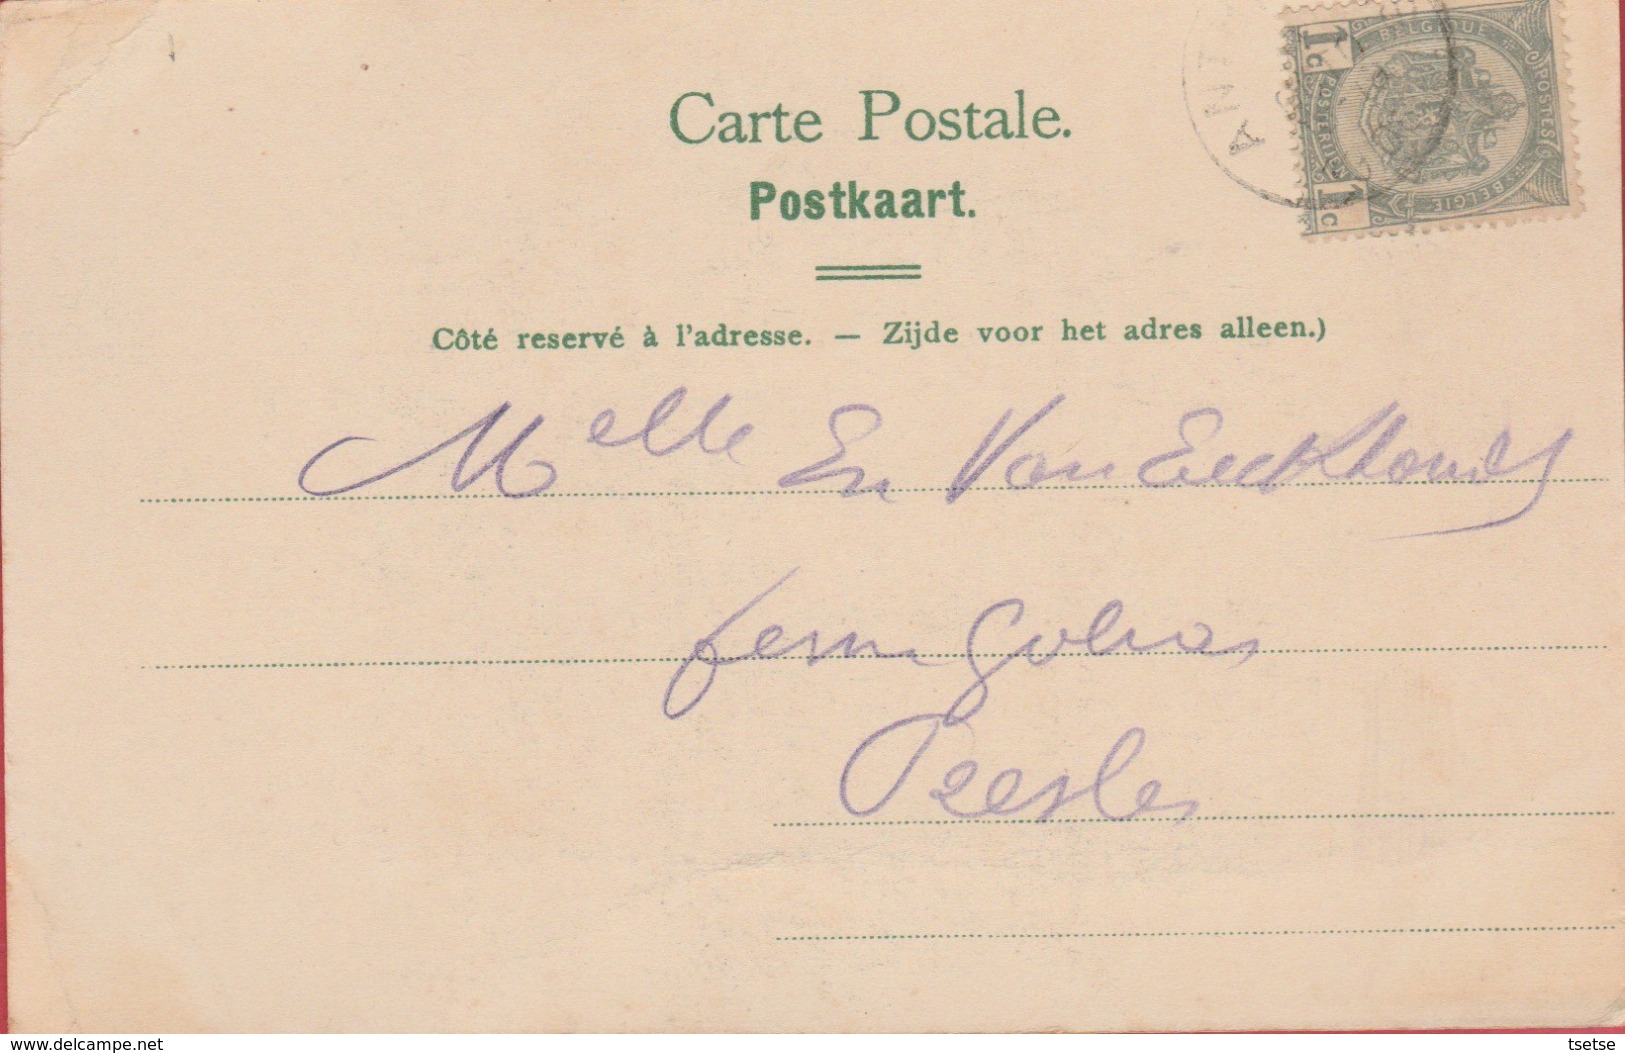 Carte Postale.
Postkaart.
Côté reservé à l'adresse. — Zijde voor het adres alleen.)
Melle Em Van Eeckhoudt
ferme
ANT
1c BELGIQUE POSTES
POSTERIJEN 1c BELGIE
delcampe.net
tsetse